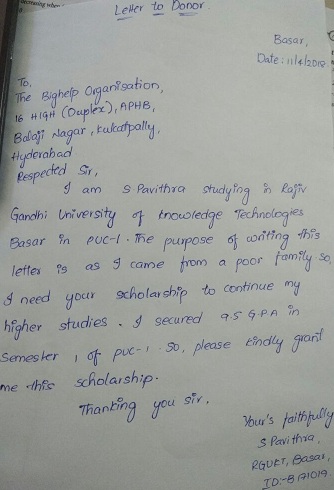 Letter to Donor.
Basar,
Date: 11/4/2018
To,
The Bighelp Organisation,
16 HIGH (Duplex), APHB,
Balaji Nagar, Kukatpally,
Hyderabad
Respected Sir,
I am S Pavithra studying in Rajiv
Gandhi University of Knowledge Technologies
Basar in PUC-1. The purpose of writing this
letter is as I came from a poor family so,
I need your scholarship to continue my
higher studies. I secured 9.5 G.P.A in
Semester 1 of PUC-1 so, please kindly grant
me this scholarship.
Thanking you sir.
Your's faithfully
S Pavithra,
RGUKT, Basar,
ID:-B171019